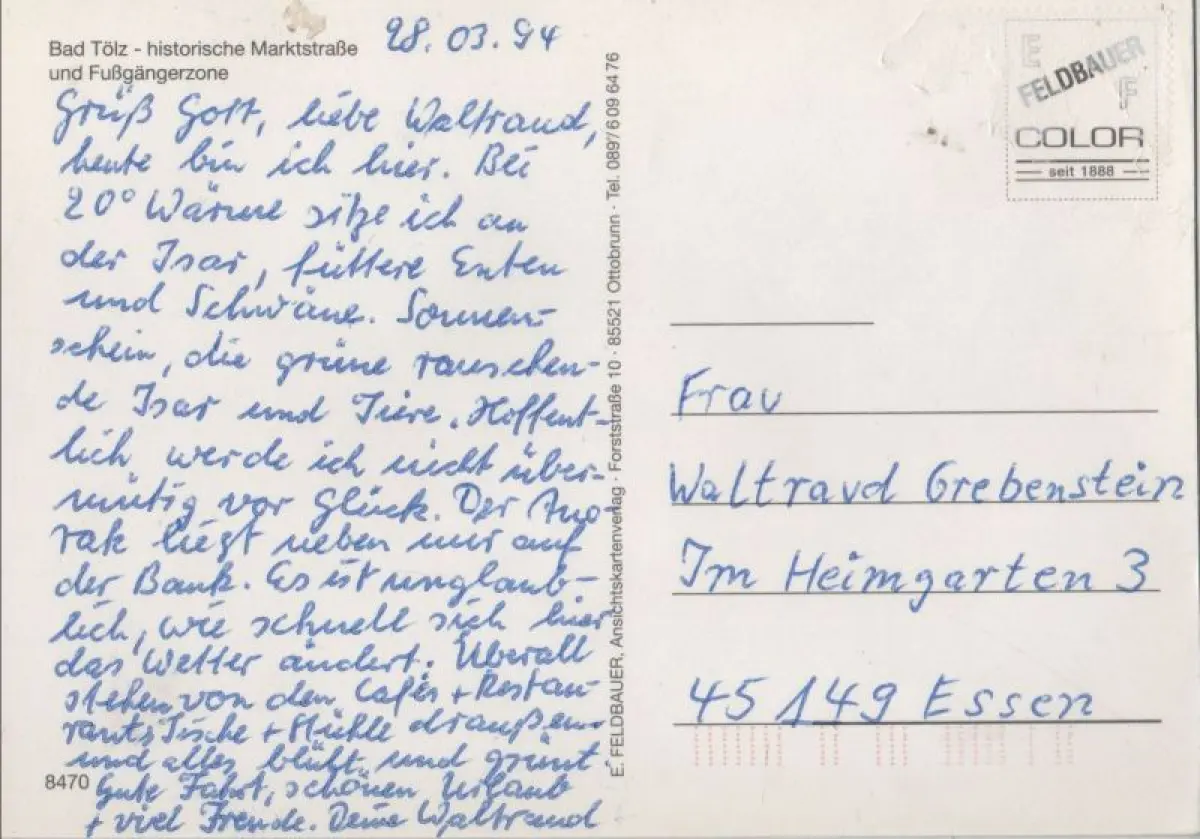 Bad Tölz - historische Marktstraße
und Fußgängerzone
28.03.94
Grüß Gott, liebe Waltraud,
heute bin ich hier. Bei
20° Wärme sitze ich an
der Isar, füttere Enten
und Schwäne. Sonnen-
schein, die grüne rauschen-
de Isar und Tiere. Hoffent-
lich werde ich nicht über-
mütig vor Glück. Der Ano-
rak liegt neben mir auf
der Bank. Es ist unglaub-
lich, wie schnell sich hier
das Wetter ändert. Überall
stehen von den Cafés + Restau-
rants Tische + Stühle draußen
und alles blüht und grünt.
Gute Fahrt, schönen Urlaub
+ viel Freude. Deine Waltraud
8470
E. FELDBAUER, Ansichtskartenverlag · Forststraße 10 · 85521 Ottobrunn · Tel. 089/6 09 64 76
FELDBAUER
COLOR
seit 1888
Frau
Waltraud Grebenstein
Im Heimgarten 3
45149 Essen